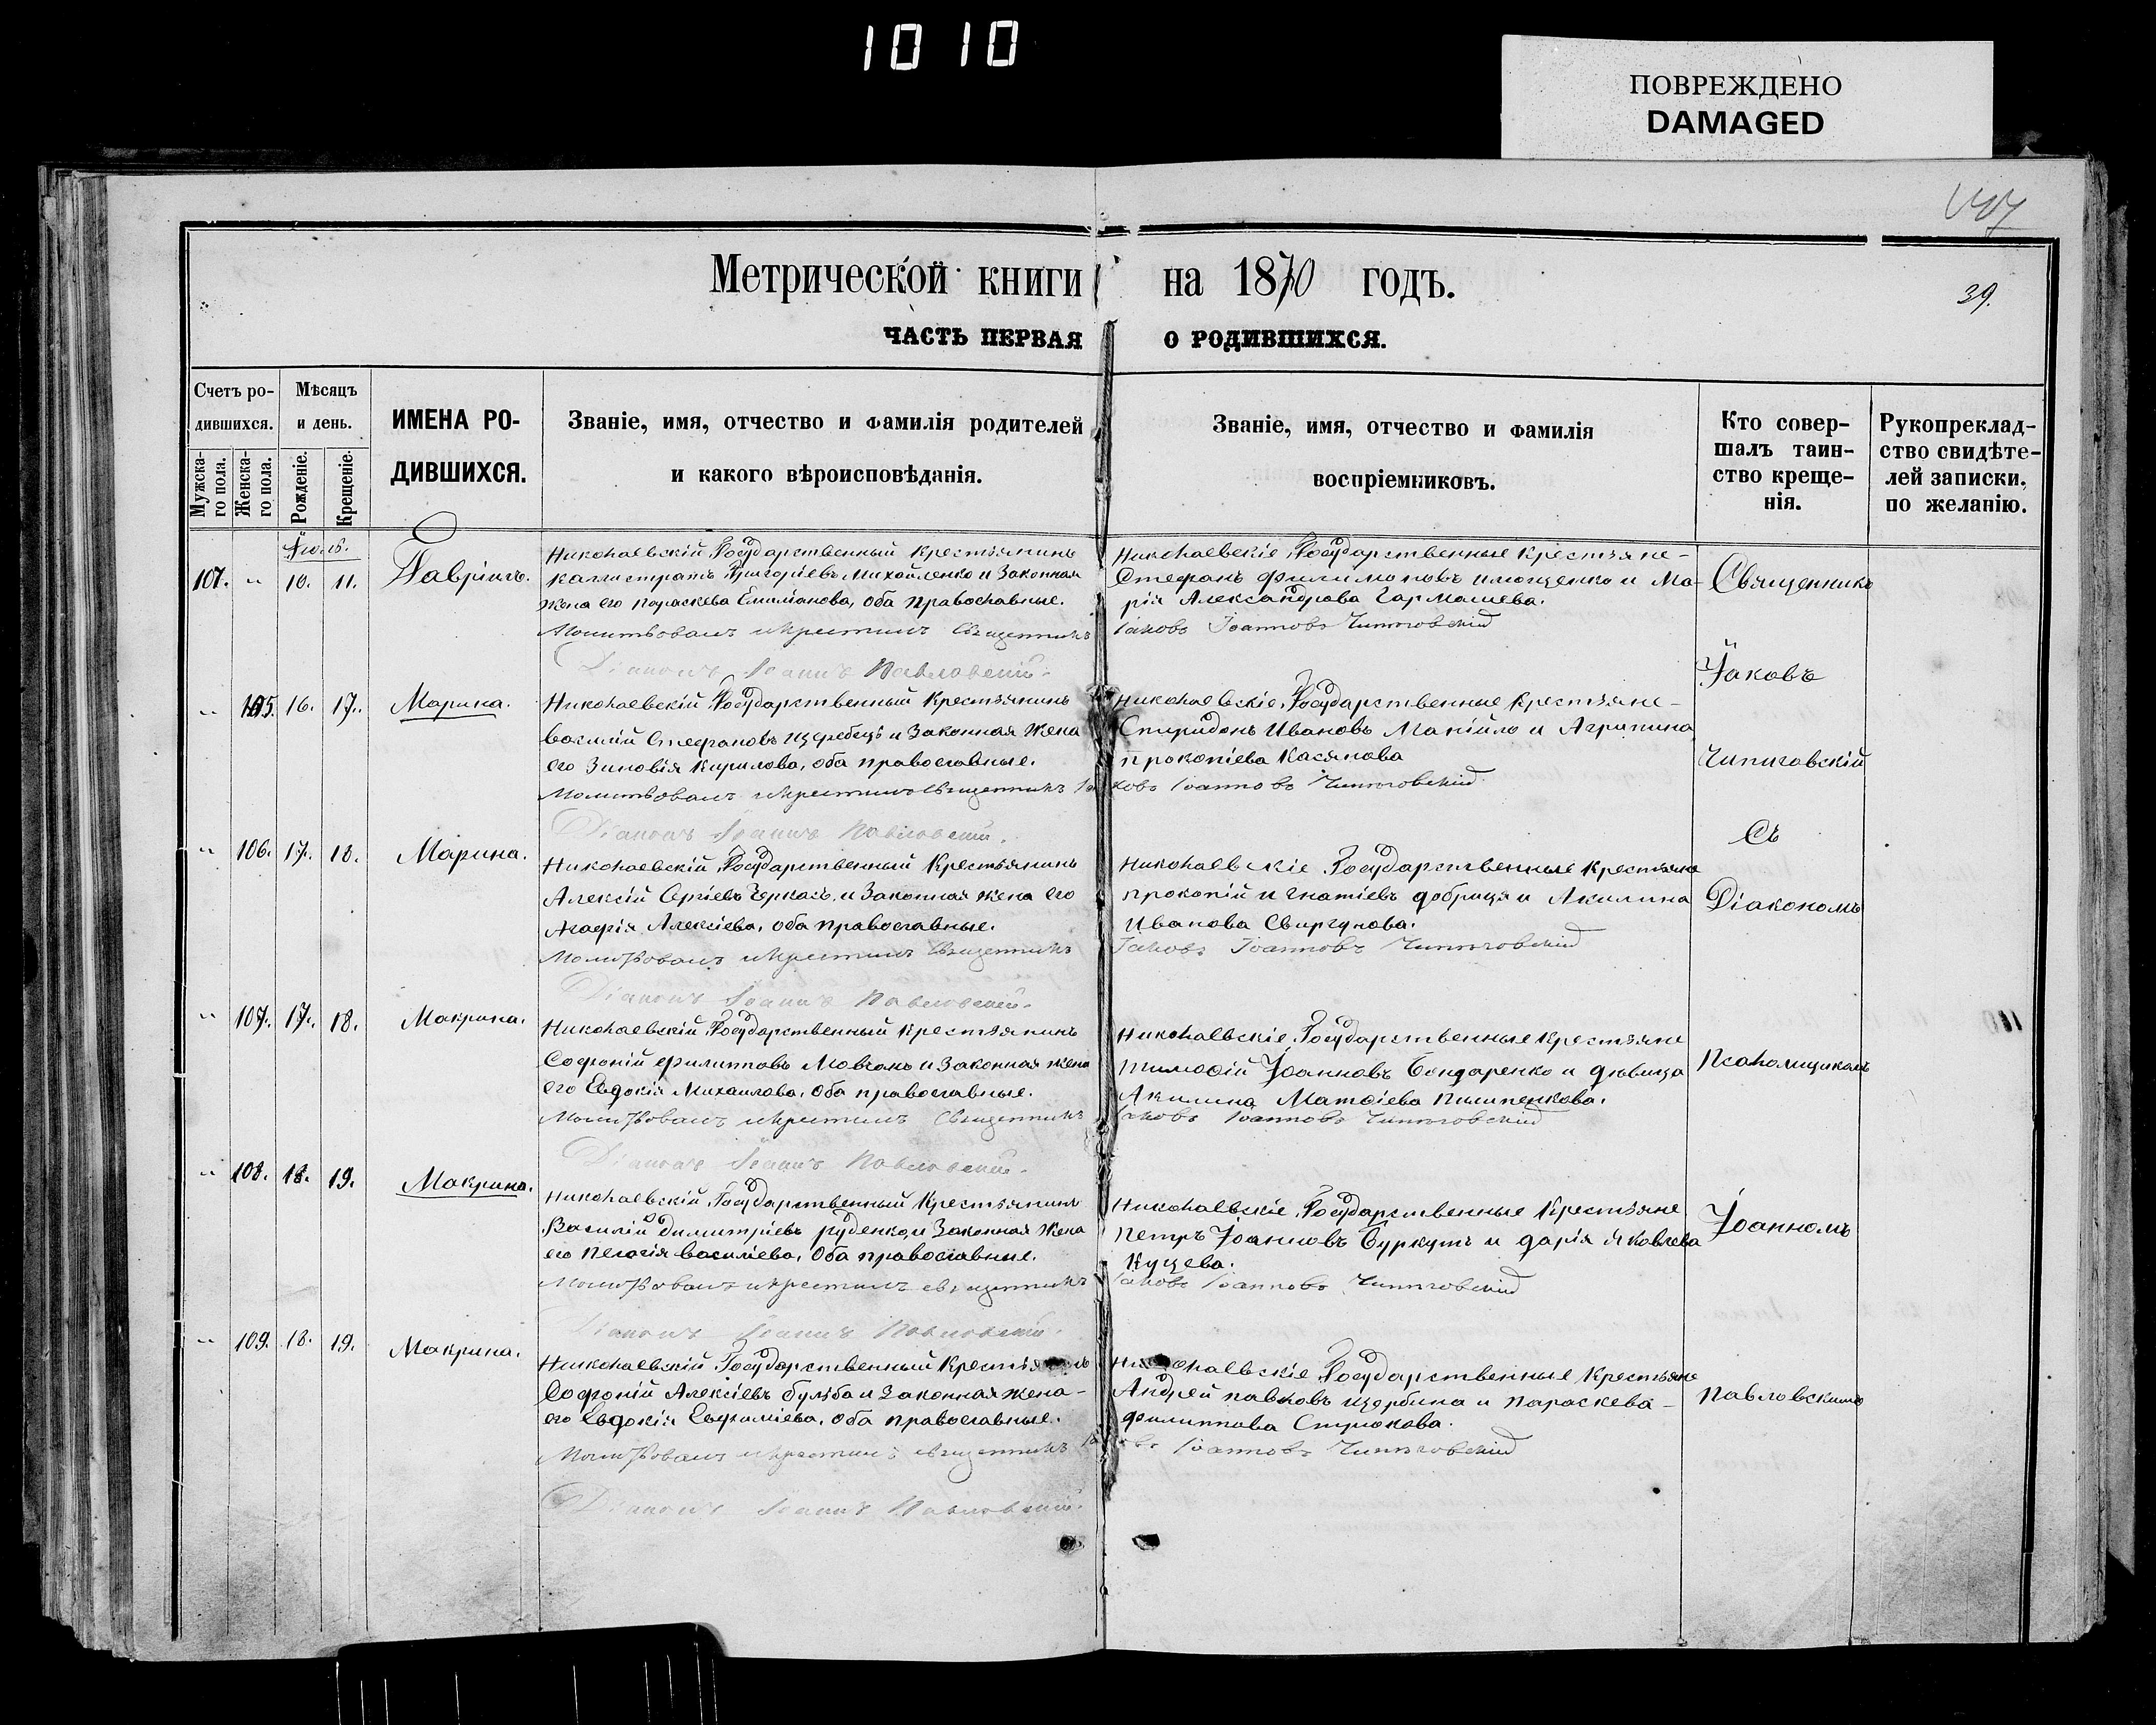 1010
ПОВРЕЖДЕНО
DAMAGED
Метрической книги на 1870 годъ.
39.
ЧАСТЬ ПЕРВАЯ О РОДИВШИХСЯ.
Счетъ ро-
дившихся.
Мужска-
го пола.
Женска-
го пола.
Мѣсяцъ
и день.
Рожденіе.
Крещеніе.
ИМЕНА РО-
ДИВШИХСЯ.
Званіе, имя, отчество и фамилія родителей
и какого вѣроисповѣданія.
Званіе, имя, отчество и фамилія
воспріемниковъ.
Кто совер-
шалъ таин-
ство креще-
нія.
Рукопреклад-
ство свидѣте-
лей записки,
по желанію.
107. " 10. 11. Гавріилъ.
Николаевскій Государственный Крестьянинъ
Каллистратъ Григоріевъ Михайленко и Законная
жена его Параскева Емиліанова, оба православные.
Молитвовалъ и крестилъ Священникъ
Діаконъ Іоаннъ Павловскій.
Николаевскіе Государственные Крестьяне
Стефанъ Филимоновъ и Ма-
рія Александрова Гармашева.
Іаковъ Іоанновъ Чипиговскій
" 105. 16. 17. Марина.
Николаевскій Государственный Крестьянинъ
Василій Стефановъ и Законная Жена
его Зиновія Кирилова, оба православные.
Молитвовалъ и крестилъ Священникъ Іа
Діаконъ Іоаннъ Павловскій.
Николаевскіе Государственные Крестьяне
Спиридонъ Ивановъ Манійло и Агрипина
Прокопіева Касянова
ковъ Іоанновъ Чипиговскій
" 106. 17. 18. Марина.
Николаевскій Государственный Крестьянинъ
Алексій Сергіевъ Черкасъ, и Законная жена его
Агафія Алексіева, оба православные.
Молитвовалъ и крестилъ Священникъ
Діаконъ Іоаннъ Павловскій.
Николаевскіе Государственные Крестьяне
Прокопій Игнатіевъ Добриця и Акилина
Иванова Свиргунова.
Іаковъ Іоанновъ Чипиговскій
" 107. 17. 18. Макрина.
Николаевскій Государственный Крестьянинъ
Софроній Филипповъ Мовчанъ и Законная жена
его Евдокія Михаилова, оба православные.
Молитвовалъ и крестилъ Священникъ
Діаконъ Іоаннъ Павловскій.
Николаевскіе Государственные Крестьяне
Тимофій Іоанновъ Бондаренко и дѣвица
Акилина Матфіева Пилипенкова.
Іаковъ Іоанновъ Чипиговскій
" 108. 18. 19. Макрина.
Николаевскій Государственный Крестьянинъ
Василій Димитріевъ Руденко, и Законная Жена
его Пелагія Василіева, оба православные.
Молитвовалъ и крестилъ священникъ
Діаконъ Іоаннъ Павловскій.
Николаевскіе Государственные Крестьяне
Петръ Іоанновъ Буркутъ и Дарія Яковлева
Куцева.
Іаковъ Іоанновъ Чипиговскій
" 109. 18. 19. Макрина.
Николаевскій Государственный Крестьянинъ
Софроній Алексіевъ Бульба и Законная жена
его Евдокія Евфиміева, оба православные.
Молитвовалъ и крестилъ священникъ Іа
Діаконъ Іоаннъ Павловскій.
Николаевскіе Государственные Крестьяне
Андрей Павловъ Щербина и Параскева
Филиппова Стрюкова.
Іоанновъ Чипиговскій
Священникъ
Іаковъ
Чипиговскій
Съ
Діакономъ
Псаломщикомъ
Іоанномъ
Павловскимъ